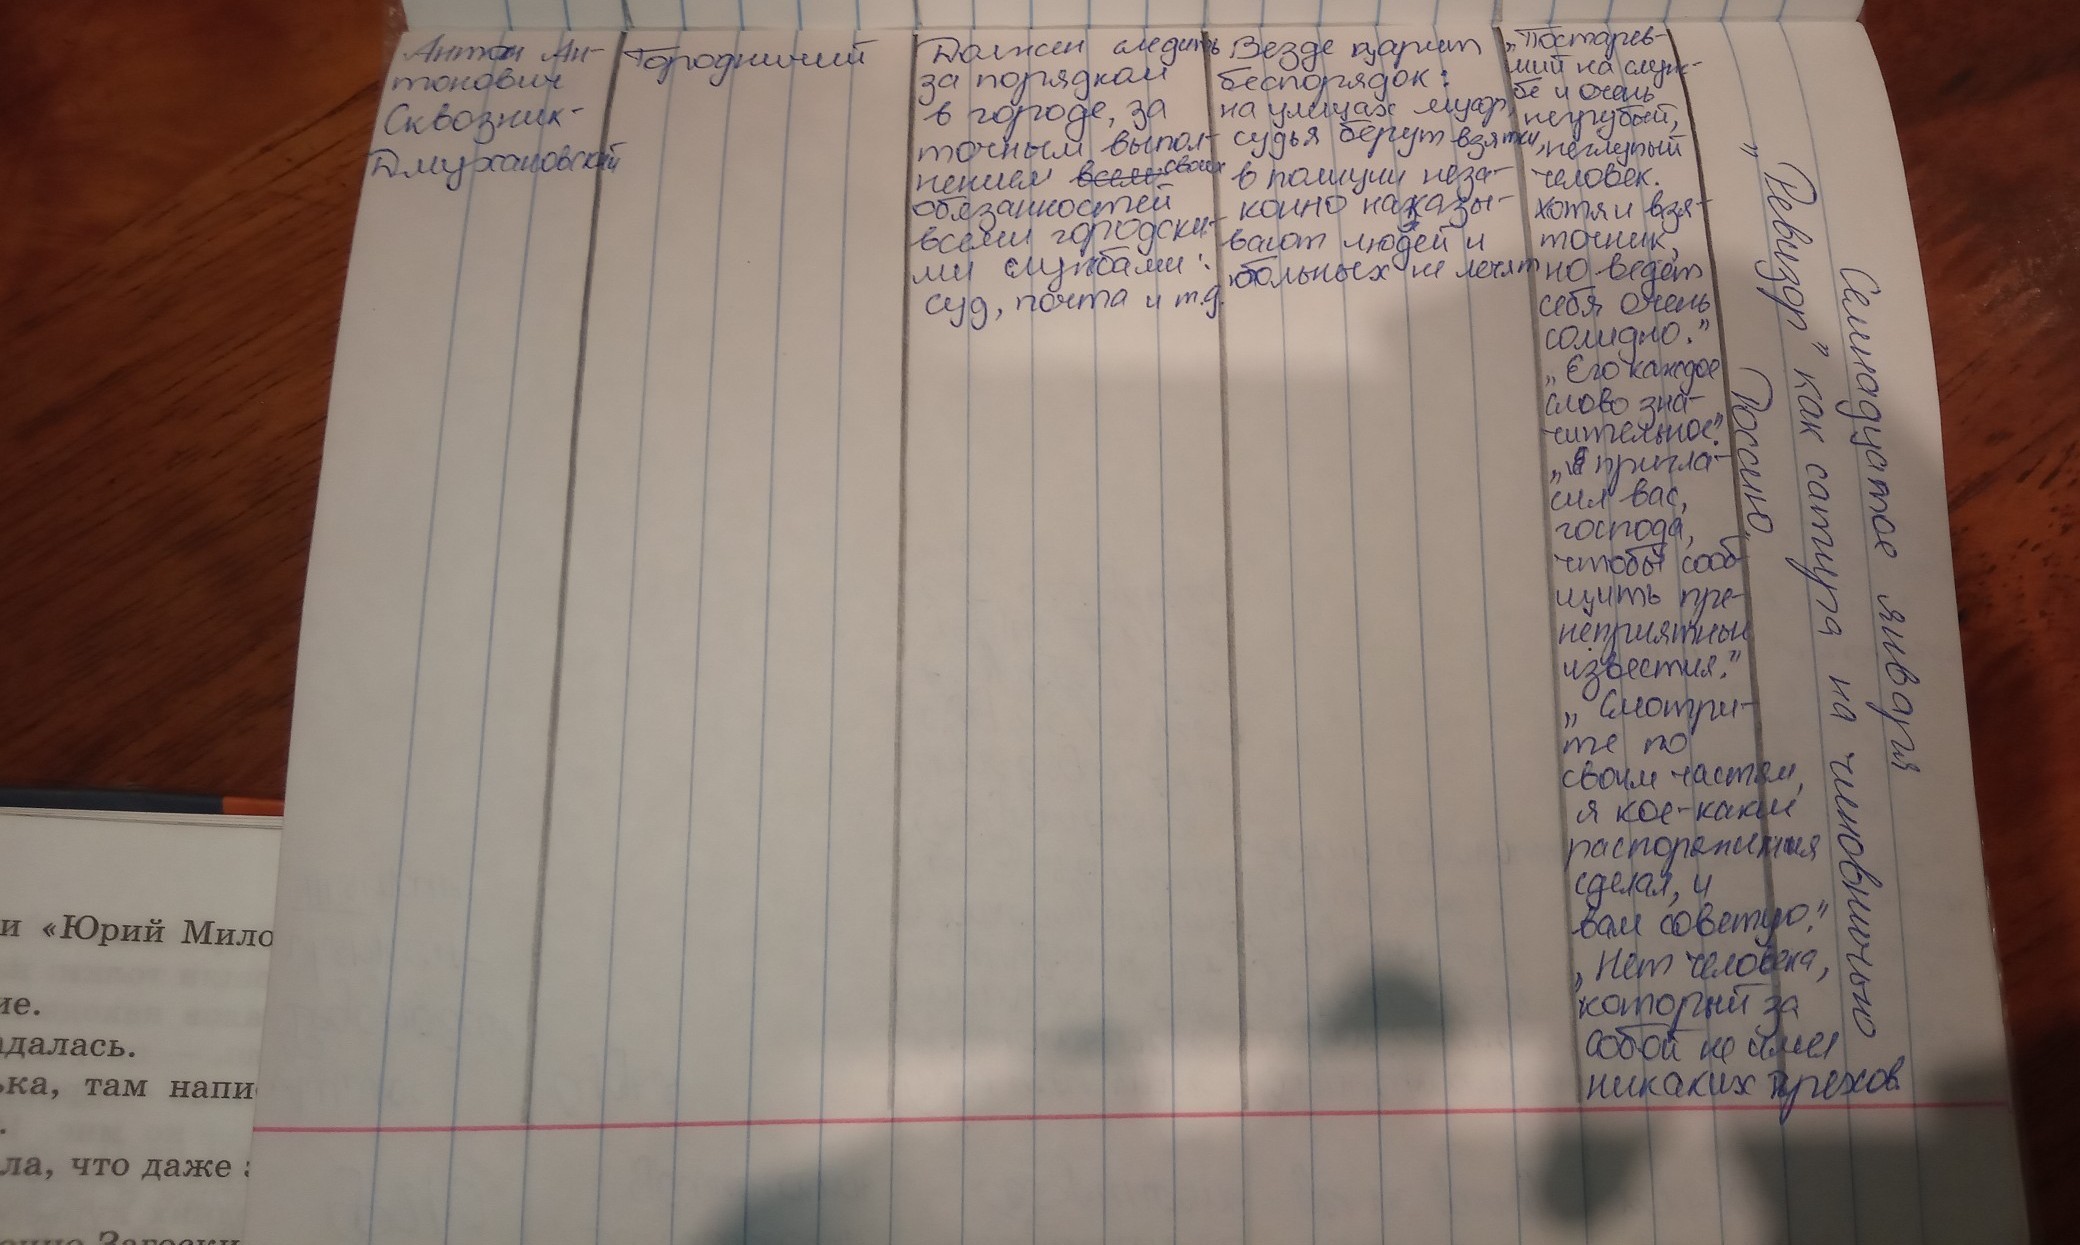 Семнадцатое января
„Ревизор" как сатира на чиновничью
Россию.
Антон Ан-
тонович
Сквозник-
Дмухановский
Городничий
Должен следить
за порядком
в городе, за
точным выпол-
нением всем своих
обязанностей
всеми городски-
ми службами:
суд, почта и т.д.
Везде царит
беспорядок:
на улицах мусор,
судья берут взятки,
в полиции неза-
конно наказы-
вают людей и
больных не лечят
„Постарев-
ший на служ-
бе и очень
негрубый,
неглупый
человек.
Хотя и взя-
точник,
но ведёт
себя очень
солидно."
„Его каждое
слово зна-
чительное."
„Я пригла-
сил вас,
господа,
чтобы сооб-
щить пре-
неприятны
известия."
„Смотри-
те по
своим частям,
я кое-какие
распоряжения
сделал, и
вам советую."
„Нет человека,
который за
собой не имел
никаких грехов.
и «Юрий Мило
ие.
адалась.
ька, там напи
.
ла, что даже
Загоски